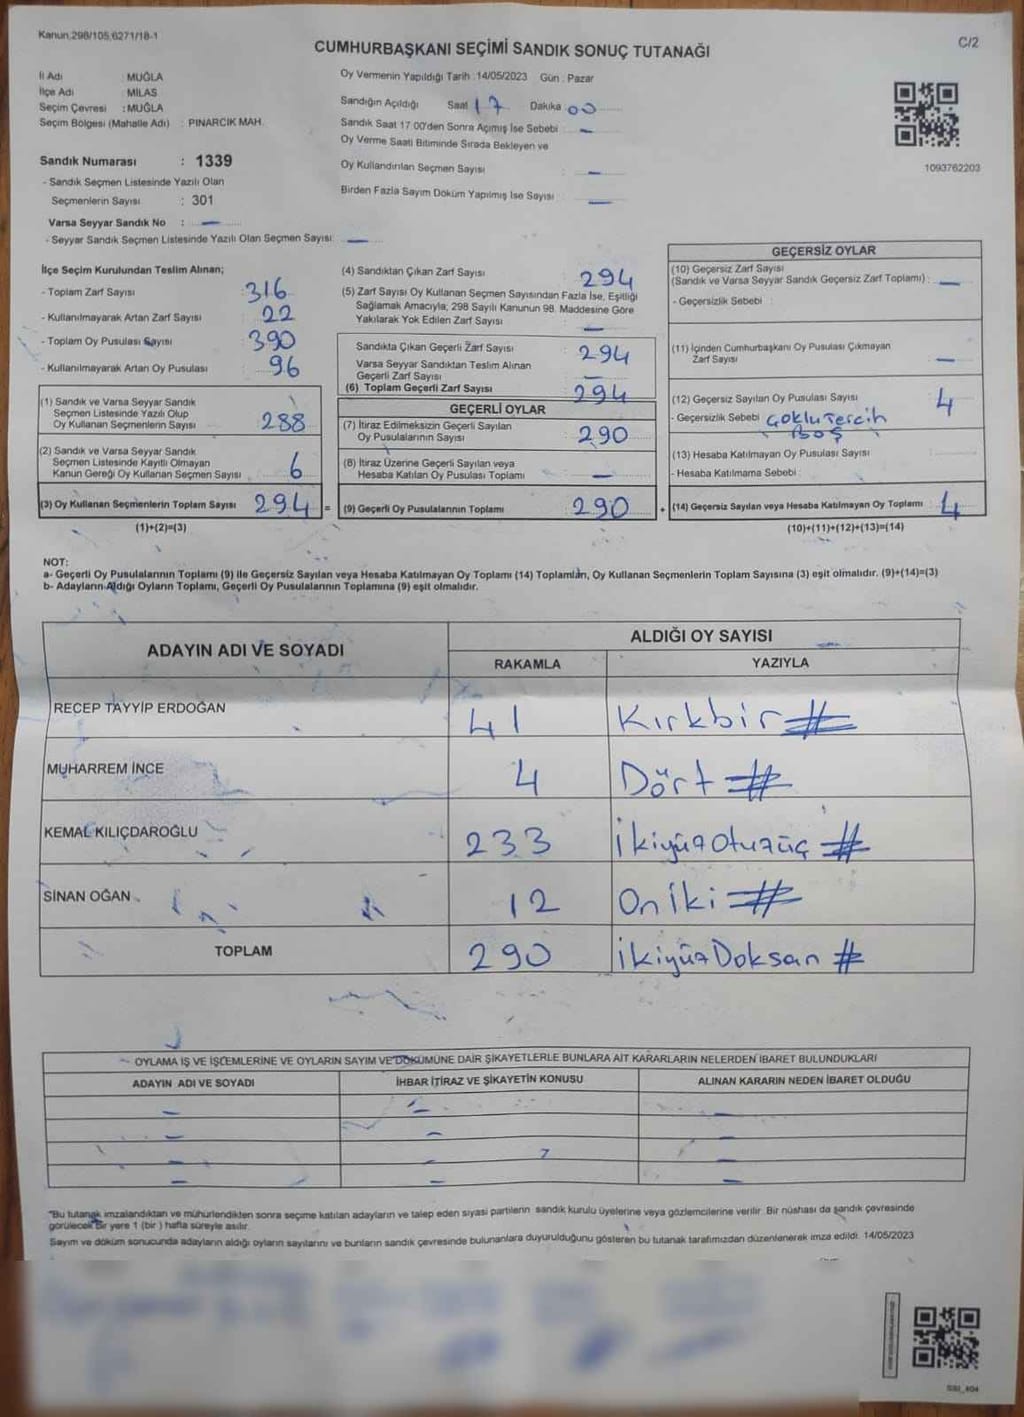 Kanun,298/105,6271/18-1
CUMHURBAŞKANI SEÇİMİ SANDIK SONUÇ TUTANAĞI
C/2
İl Adı : MUĞLA
İlçe Adı : MİLAS
Seçim Çevresi : MUĞLA
Seçim Bölgesi (Mahalle Adı) : PINARCIK MAH.
Oy Vermenin Yapıldığı Tarih :14/05/2023 Gün : Pazar
Sandığın Açıldığı Saat 17 Dakika 00
Sandık Saat 17.00'den Sonra Açımış İse Sebebi : —
Oy Verme Saati Bitiminde Sırada Bekleyen ve
Oy Kullandırılan Seçmen Sayısı : —
Birden Fazla Sayım Döküm Yapılmış İse Sayısı : —
1093762203
Sandık Numarası : 1339
- Sandık Seçmen Listesinde Yazılı Olan
Seçmenlerin Sayısı : 301
Varsa Seyyar Sandık No : —
- Seyyar Sandık Seçmen Listesinde Yazılı Olan Seçmen Sayısı: —
İlçe Seçim Kurulundan Teslim Alınan;
- Toplam Zarf Sayısı : 316
- Kullanılmayarak Artan Zarf Sayısı : 22
- Toplam Oy Pusulası Sayısı : 390
- Kullanılmayarak Artan Oy Pusulası : 96
(1) Sandık ve Varsa Seyyar Sandık
Seçmen Listesinde Yazılı Olup
Oy Kullanan Seçmenlerin Sayısı : 288
(2) Sandık ve Varsa Seyyar Sandık
Seçmen Listesinde Kayıtlı Olmayan
Kanun Gereği Oy Kullanan Seçmen Sayısı : 6
(3) Oy Kullanan Seçmenlerin Toplam Sayısı 294 =
(1)+(2)=(3)
(4) Sandıktan Çıkan Zarf Sayısı : 294
(5) Zarf Sayısı Oy Kullanan Seçmen Sayısından Fazla İse, Eşitliği
Sağlamak Amacıyla, 298 Sayılı Kanunun 98. Maddesine Göre
Yakılarak Yok Edilen Zarf Sayısı : —
Sandıkta Çıkan Geçerli Zarf Sayısı : 294
Varsa Seyyar Sandıktan Teslim Alınan
Geçerli Zarf Sayısı : —
(6) Toplam Geçerli Zarf Sayısı : 294
GEÇERLİ OYLAR
(7) İtiraz Edilmeksizin Geçerli Sayılan
Oy Pusulalarının Sayısı : 290
(8) İtiraz Üzerine Geçerli Sayılan veya
Hesaba Katılan Oy Pusulası Toplamı : —
(9) Geçerli Oy Pusulalarının Toplamı : 290 +
GEÇERSİZ OYLAR
(10) Geçersiz Zarf Sayısı
(Sandık ve Varsa Seyyar Sandık Geçersiz Zarf Toplamı) : —
- Geçersizlik Sebebi :
(11) İçinden Cumhurbaşkanı Oy Pusulası Çıkmayan
Zarf Sayısı : —
(12) Geçersiz Sayılan Oy Pusulası Sayısı : 4
- Geçersizlik Sebebi Çoklu Tercih
Boş
(13) Hesaba Katılmayan Oy Pusulası Sayısı :
- Hesaba Katılmama Sebebi :
(14) Geçersiz Sayılan veya Hesaba Katılmayan Oy Toplamı : 4
(10)+(11)+(12)+(13)=(14)
NOT:
a- Geçerli Oy Pusulalarının Toplamı (9) ile Geçersiz Sayılan veya Hesaba Katılmayan Oy Toplamı (14) Toplamları, Oy Kullanan Seçmenlerin Toplam Sayısına (3) eşit olmalıdır. (9)+(14)=(3)
b- Adayların Aldığı Oyların Toplamı, Geçerli Oy Pusulalarının Toplamına (9) eşit olmalıdır.
ADAYIN ADI VE SOYADI ALDIĞI OY SAYISI
RAKAMLA YAZIYLA
RECEP TAYYİP ERDOĞAN 41 Kırkbir #
MUHARREM İNCE 4 Dört #
KEMAL KILIÇDAROĞLU 233 İkiyüzOtuzüç #
SİNAN OĞAN 12 Oniki #
TOPLAM 290 İkiyüzDoksan #
OYLAMA İŞ VE İŞLEMLERİNE VE OYLARIN SAYIM VE DÖKÜMÜNE DAİR ŞİKAYETLERLE BUNLARA AİT KARARLARIN NELERDEN İBARET BULUNDUKLARI
ADAYIN ADI VE SOYADI İHBAR İTİRAZ VE ŞİKAYETİN KONUSU ALINAN KARARIN NEDEN İBARET OLDUĞU
— — —
— — —
— — —
— — —
"Bu tutanak imzalandıktan ve mühürlendikten sonra seçime katılan adayların ve talep eden siyasi partilerin sandık kurulu üyelerine veya gözlemcilerine verilir. Bir nüshası da sandık çevresinde
görülecek bir yere 1 (bir ) hafta süreyle asılır.
Sayım ve döküm sonucunda adayların aldığı oyların sayılarını ve bunların sandık çevresinde bulunanlara duyurulduğunu gösteren bu tutanak tarafımızdan düzenlenerek imza edildi. 14/05/2023